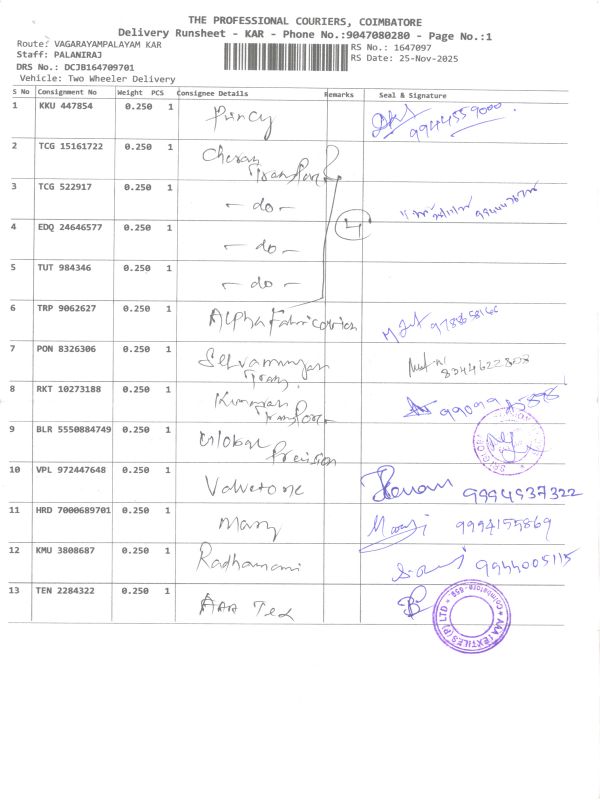 THE PROFESSIONAL COURIERS, COIMBATORE
Delivery Runsheet - KAR - Phone No.:9047080280 - Page No.:1
Route: VAGARAYAMPALAYAM KAR
RS No.: 1647097
Staff: PALANIRAJ
RS Date: 25-Nov-2025
DRS No.: DCJB164709701
Vehicle: Two Wheeler Delivery
S No Consignment No Weight PCS Consignee Details Remarks Seal & Signature
1 KKU 447854 0.250 1 9944559000
2 TCG 15161722 0.250 1 Cheran Transport
3 TCG 522917 0.250 1 - do -
4 EDQ 24646577 0.250 1 - do - 4
5 TUT 984346 0.250 1 - do -
6 TRP 9062627 0.250 1 Alpha Fabrications
7 PON 8326306 0.250 1 Selvamurugan Trans.
8 RKT 10273188 0.250 1 Transport
9 BLR 5550884749 0.250 1 Global Precision
10 VPL 972447648 0.250 1 9994937322
11 HRD 7000689701 0.250 1 Mary 9994155869
12 KMU 3808687 0.250 1 Radhamani 9944005115
13 TEN 2284322 0.250 1 AAA Tex
AAA TEXTILES (P) LTD
Coimbatore - 659.